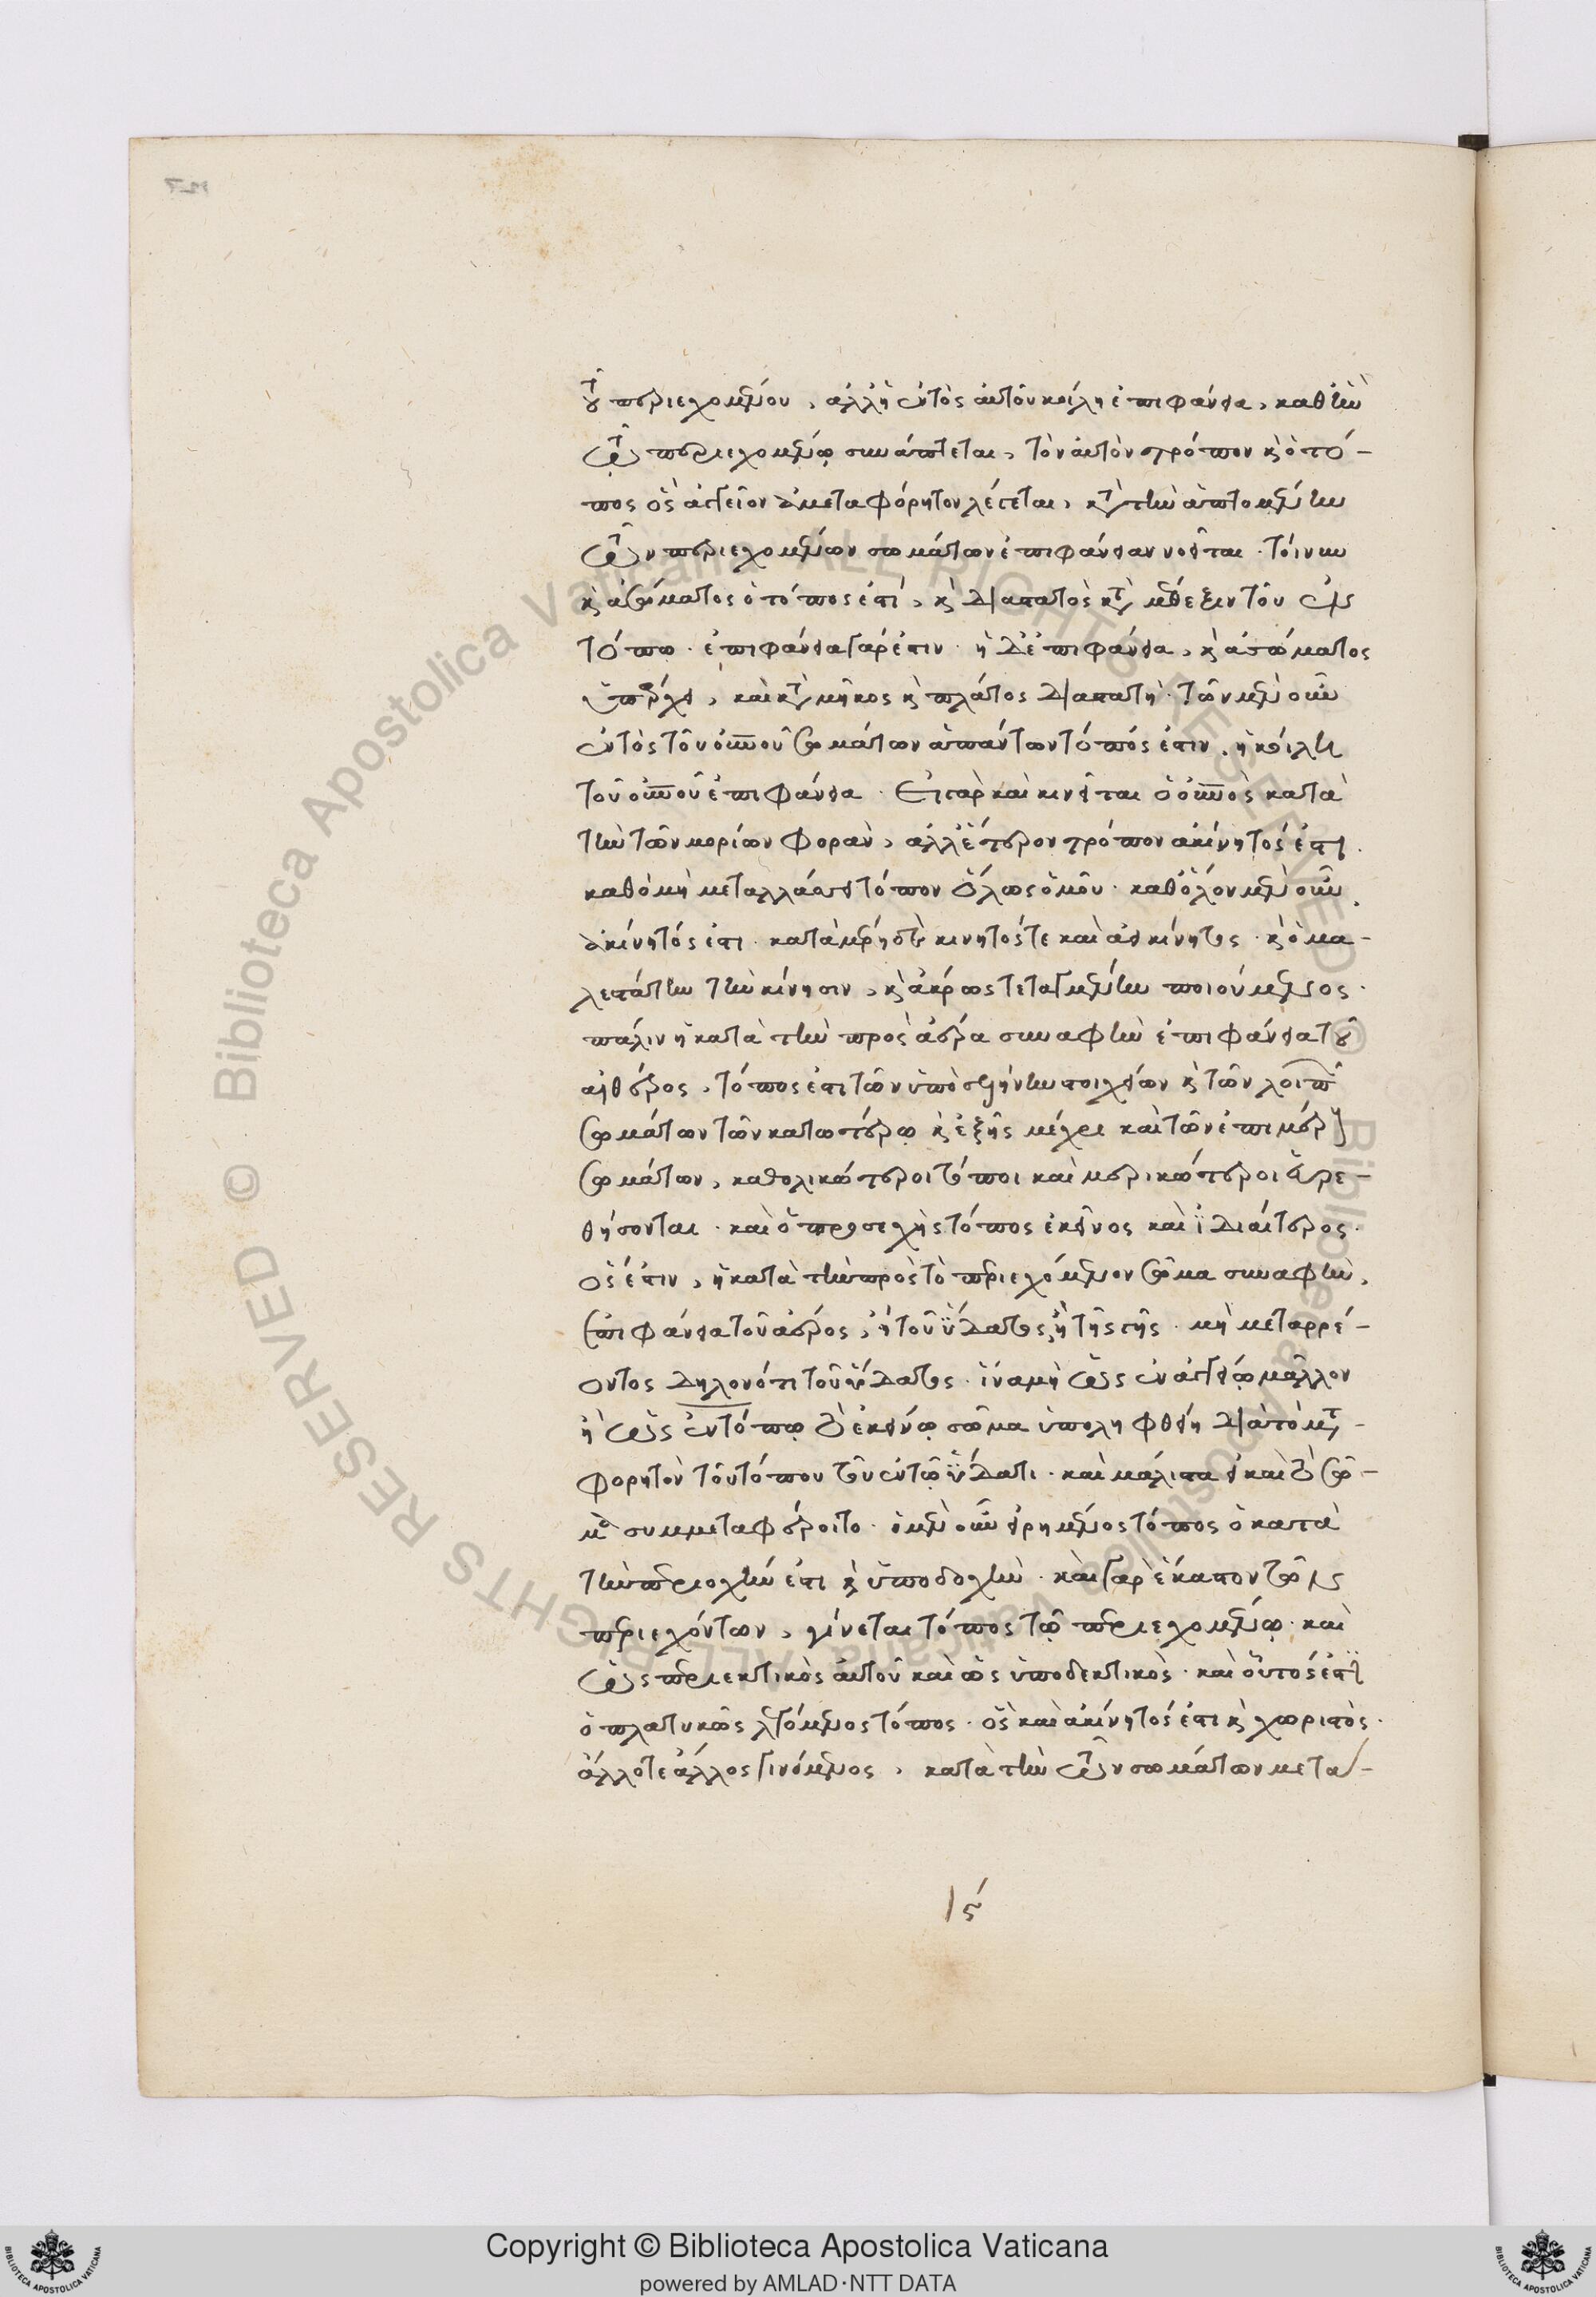 τοῦ περιεχομένου, ἀλλ' ἡ ἐντὸς αὐτοῦ κοίλη ἐπιφάνεια, καθ' ἣν
τῷ περιεχομένῳ συνάπτεται, τὸν αὐτὸν τρόπον καὶ ὁ τό-
πος ὃς ἀγγεῖον ἀμεταφόρητον λέγεται, κατὰ τὴν ἁπτομένην
τῶν περιεχομένων σωμάτων ἐπιφάνειαν νοεῖται. τοίνυν
καὶ ἀσώματος ὁ τόπος ἐστί, καὶ διαστατὸς κατὰ μέθεξιν τοῦ ἐν
τόπῳ. ἐπιφάνεια γάρ ἐστιν. ἡ δὲ ἐπιφάνεια, καὶ ἀσώματος
ὑπάρχει, καὶ κατὰ μῆκος καὶ πλάτος διαστατή. τῶν μὲν οὖν
ἐντὸς τοῦ οὐνοῦ σωμάτων ἁπάντων τόπος ἐστιν, ἡ κοίλη
τοῦ οὐνοῦ ἐπιφάνεια. εἰ γὰρ καὶ κινεῖται ὁ οὐνὸς κατὰ
τὴν τῶν μορίων φορὰν, ἀλλ' ἕτερον τρόπον ἀκίνητός ἐστι.
καθὸ μὴ μεταλλάσσει τόπον ὅλως ὁμοῦ. καθόλου μὲν οὖν
ἀκίνητός ἐστι. κατὰ μέρη δὲ κινητός τε καὶ ἀεικίνητος. καὶ ὁμα-
λεστάτην τὴν κίνησιν, καὶ ἄκρως τεταγμένην ποιούμενος.
πάλιν ἡ κατὰ τὴν πρὸς ἀέρα συναφὴν ἐπιφάνεια τοῦ
αἰθέρος, τόπος ἐστὶ τῶν ὑπὸ σελήνην στοιχείων καὶ τῶν λοιπῶν
σωμάτων τῶν κατωτέρω καὶ ἑξῆς μέχρι καὶ τῶν ἐπὶ μέρους
σωμάτων, καθολικώτεροι τόποι καὶ μερικώτεροι εὑρε-
θήσονται. καὶ ὁ προσεχὴς τόπος ἐκεῖνος καὶ ἰδιαίτερος.
ὅς ἐστιν, ἡ κατὰ τὴν πρὸς τὸ περιεχόμενον σῶμα συναφὴν,
ἐπιφάνεια τοῦ ἀέρος, ἢ τοῦ ὕδατος, ἢ τῆς γῆς. μὴ μεταρρέ-
οντος δηλονότι τοῦ ὕδατος. ἵνα μὴ ὡς ἐν ἀγγείῳ μᾶλλον
ἢ ὡς ἐν τόπῳ τὸ ἐκείνῳ σῶμα ὑποληφθείη διὰ τὸ μετα-
φορητὸν τοῦ τόπου τοῦ ἐν τῷ ὕδατι. καὶ μάλιστα εἰ καὶ τὸ σῶ-
μα συμμεταφέροιτο. ὁ μὲν οὖν εἰρημένος τόπος ὁ κατὰ
τὴν περιοχήν ἐστι καὶ ὑποδοχὴν. καὶ γὰρ ἕκαστον τῶν
περιεχόντων, γίνεται τόπος τῷ περιεχομένῳ. καὶ
ὡς περιεκτικὸς αὐτοῦ καὶ ὡς ὑποδεκτικὸς. καὶ οὗτός ἐστιν
ὁ πλατυκῶς λεγόμενος τόπος. ὃς καὶ ἀκίνητός ἐστι καὶ χωριστὸς.
ἄλλοτε ἄλλος γινόμενος, κατὰ τὴν τῶν σωμάτων μετα-
ις